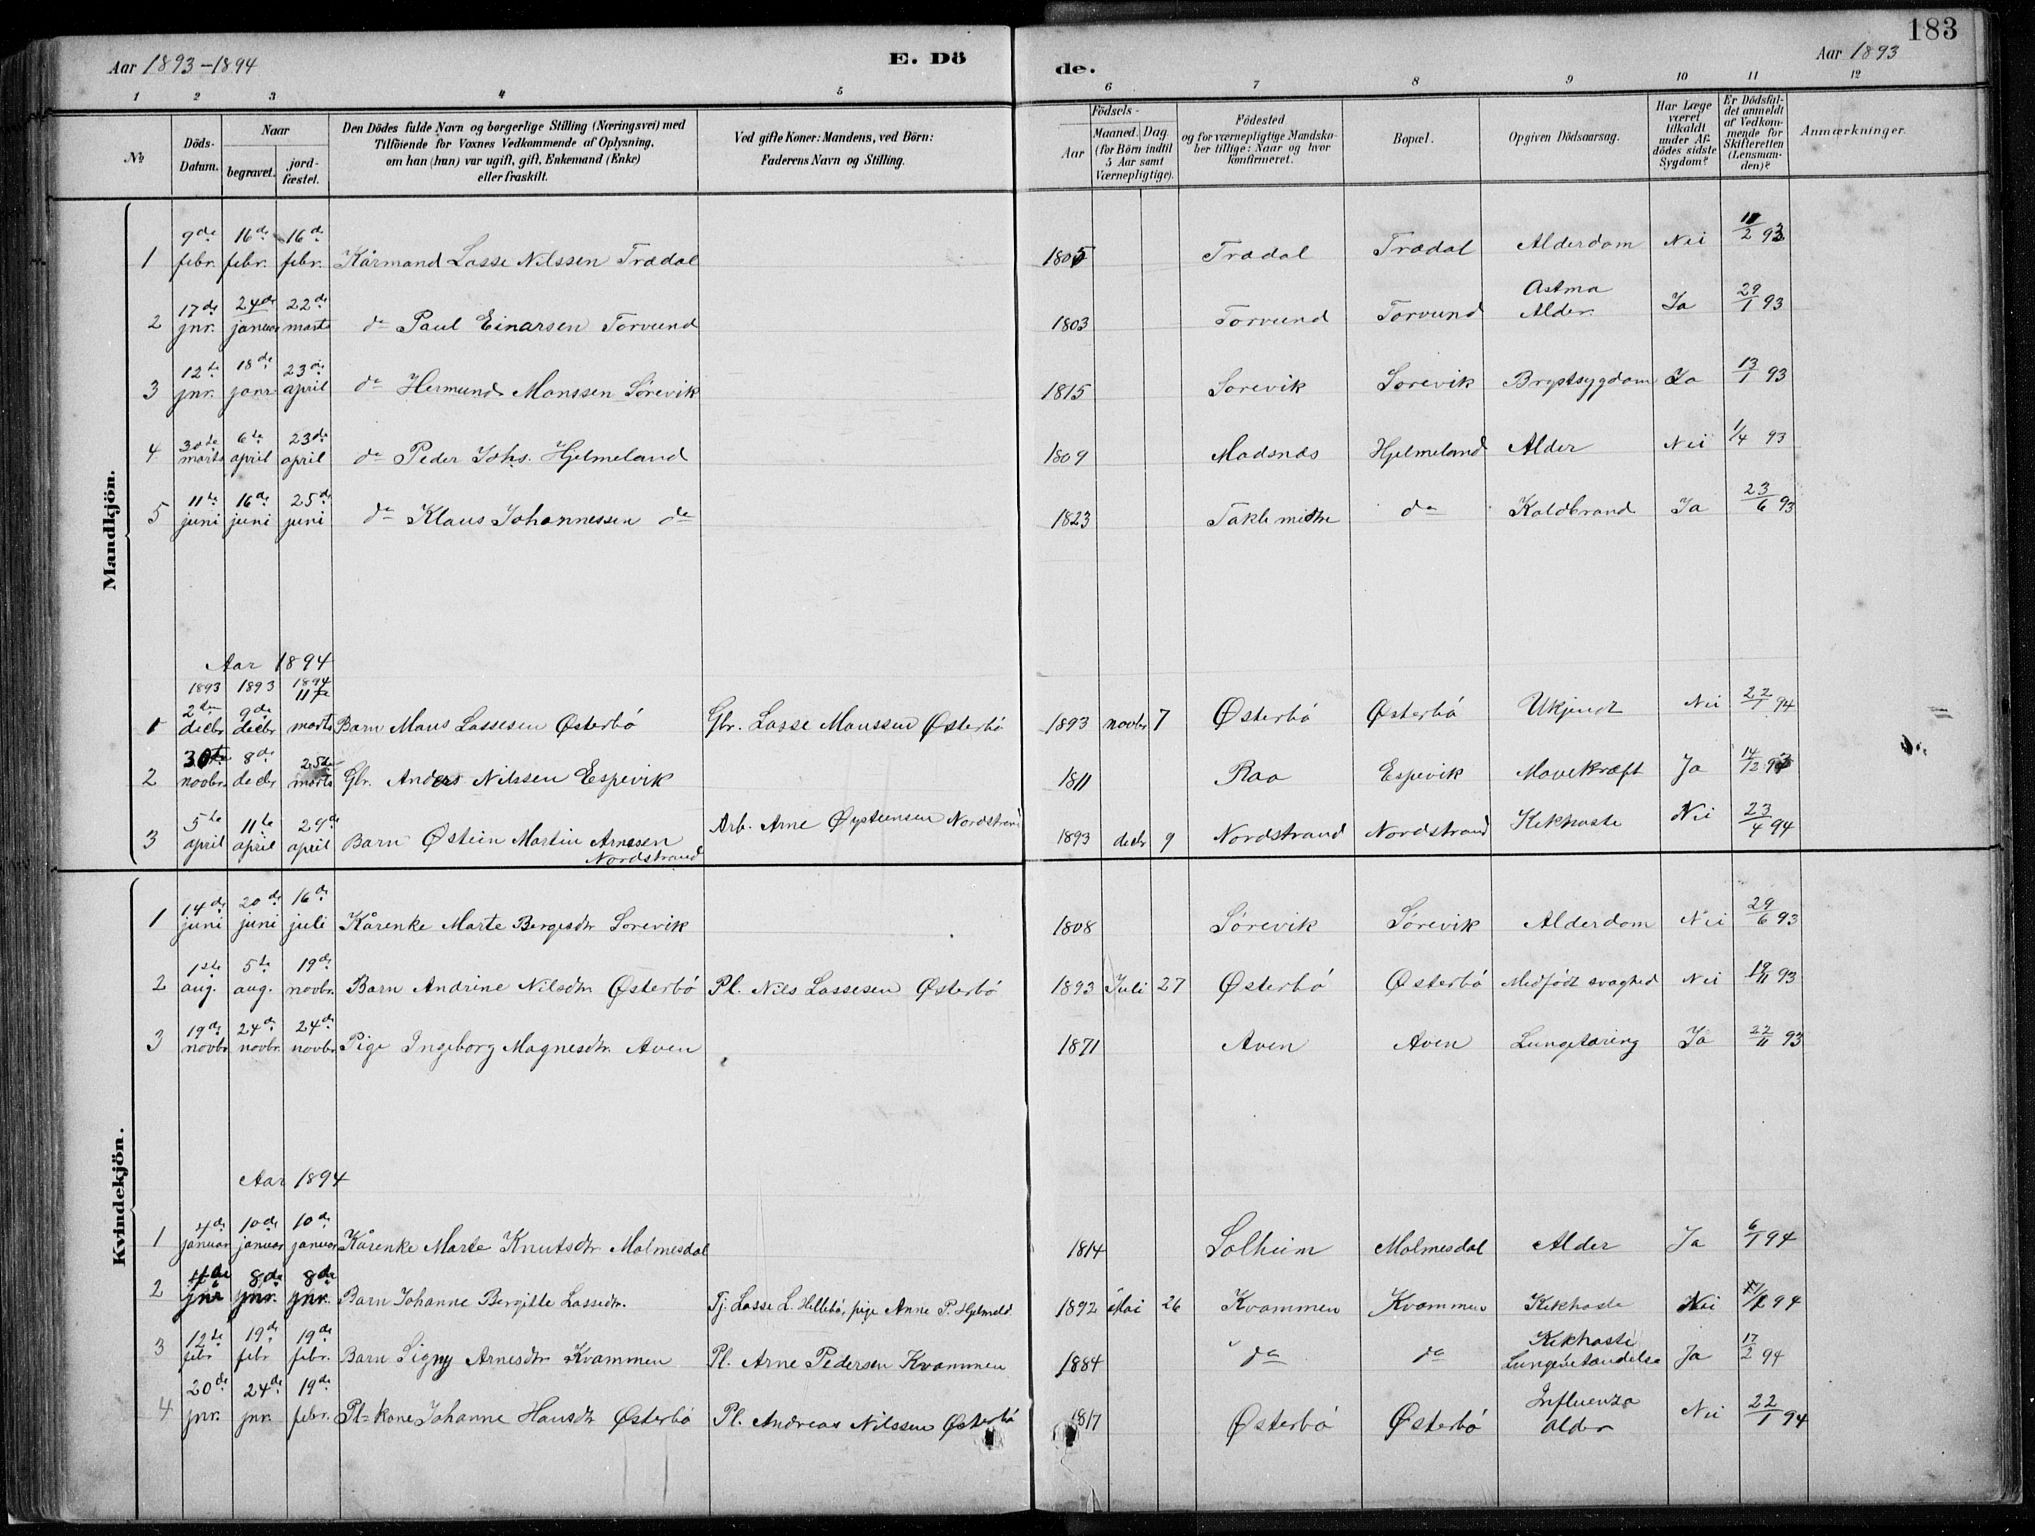 183
Aar 1893-1894 E. Dö de. Aar 1893
1 2 3 4 5 6 7 8 9 10 11 12
No Döds-Datum. Naar begravet. jord-fæstet. Den Dödes fulde Navn og borgerlige Stilling (Næringsvei) med Tilföiende for Voxnes Vedkommende af Oplysning, om han (hun) var ugift, gift, Enkemand (Enke) eller fraskilt. Ved gifte Koner: Mandens, ved Börn: Faderens Navn og Stilling. Födsels- Aar Maaned. Dag. (for Börn indtil 5 Aar samt Værnepligtige). Födested og for værnepligtige Mandskaber tillige: Naar og hvor konfirmeret. Bopæl. Opgiven Dödsaarsag. Har Læge været tilkaldt under Afdödes sidste Sygdom? Er Dödsfaldet anmeldt af Vedkommende for Skifteretten (Lensmanden)? Anmærkninger.
Mandkjön.
1 9de febr. 16de febr. 16de febr. Kårmand Lasse Nilssen Trædal 1805 Trædal Trædal Alderdom Nei 11/2 93
2 17de jnr. 24de januar 22de marts do Paul Einarsen Torvund 1803 Torvund Torvund Astma Alder. Ja 29/1 93
3 12te jnr. 18de janr 23de april do Hermund Monssen Sörevik 1815 Sorevik Sorevik Brystsygdom Ja 13/1 93
4 30te marts 6te april 23de april do Peder Johs. Hjelmeland 1809 Madsnæs Hjelmeland Alder Nei 1/4 93
5 11te juni 16de juni 25de juni do Klaus Johannessen do 1823 Takle midtre do Koldbrand Ja 23/6 93
Aar 1894
1893 1893 1894
1 2den decbr 9de decbr 11te marts Barn Mons Lassesen Østerbö Gbr. Lasse Monssen Østerbö 1893 novbr 7 Østerbö Østerbö Ukjendt Nei 22/1 94
2 30te novbr. 8de decbr 25de marts Gbr. Anders Nilssen Espevik 1811 Raa Espevik Mavekræft Ja 14/12 93
3 5te april 11te april 29de april Barn Østein Martin Arnesen Nordstrand Arb. Arne Øysteensen Nordstrand 1893 decbr 9 Nordstrand Nordstrand Kikhoste Nei 23/4 94
Kvindekjön.
1 14de juni 20de juni 16de juli Kårenke Marte Bergesdtr Sorevik 1808 Sörevik Sörevik Alderdom Nei 29/6 93
2 1ste aug. 5te aug. 19de novbr. Barn Andrine Nilsdtr Østerbö Pl. Nils Lassesen Østerbö 1893 Juli 27 Østerbö Østerbö Medfödt svaghed Nei 19/11 93
3 19de novbr 24de novbr. 24de novbr Pige Ingeborg Magnesdtr. Aven 1871 Aven Aven Lungetæring Ja 22/11 93
Aar 1894
1 4de januar 10de januar 10de januar Kårenke Marte Knutsdtr Molmesdal 1814 Solheim Molmesdal Alder Ja 6/1 94
2 4de jnr 8de jnr. 8de jnr. Barn Johanne Bergitte Lassedtr. Tj. Lasse L. Hillebö, pige Anne P. Hjelmeld. 1892 Mai 26 Kvammen Kvammen Kikhoste Nei 94
3 12te febr 19de febr 19de febr. Barn Signy Arnesdtr Kvammen Pl. Arne Pedersen Kvammen 1884 do do Kikhoste Lungebetændelse Ja 17/2 94
4 20de jnr. 24de jnr. 19de febr. Pl-kone Johanne Hansdtr Østerbö Pl. Andreas Nilssen Østerbö 1817 Østerbö Østerbö Influenza Alder Nei 22/1 94